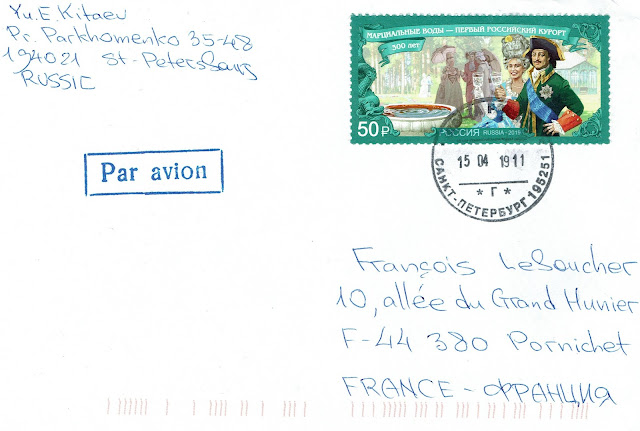 Yu.E.Kitaev
Pr. Parkhomenko 35-48
194021 St-Petersburg
RUSSIC
МАРЦИАЛЬНЫЕ ВОДЫ — ПЕРВЫЙ РОССИЙСКИЙ КУРОРТ
300 ЛЕТ
50 Р
РОССИЯ RUSSIA · 2019
15 04 1911
* Г *
САНКТ-ПЕТЕРБУРГ 195251
Par avion
François LeBoucher
10, allée du Grand Hunier
F-44 380 Pornichet
FRANCE - ФРАНЦИЯ